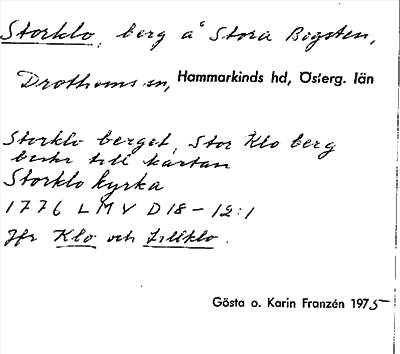 Storklo, berg å Stora Bogsten,
Drothems sn, Hammarkinds hd, Österg. län
Storklo berget, Stor Klo berg
beskr till kartan
Storklo kyrka
1776 LMV D18-12:1
Jfr Klo och Lillklo.
Gösta o. Karin Franzén 1975